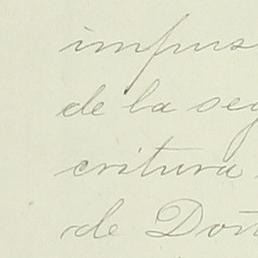 impus
de la seg
critura
de Don